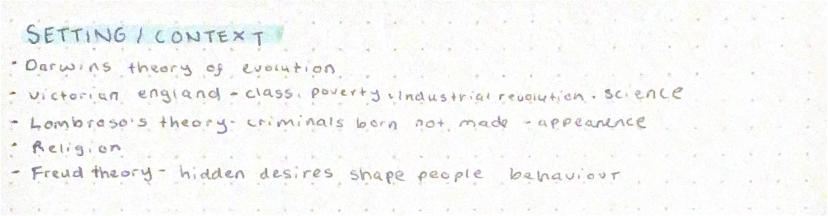 SETTING / CONTEXT
- Darwins theory of evolution
- Victorian england - class, poverty, industrial revolution. science
- Lombroso's theory - criminals born not made - appearence
- Religion
- Freud theory - hidden desires shape people behaviour